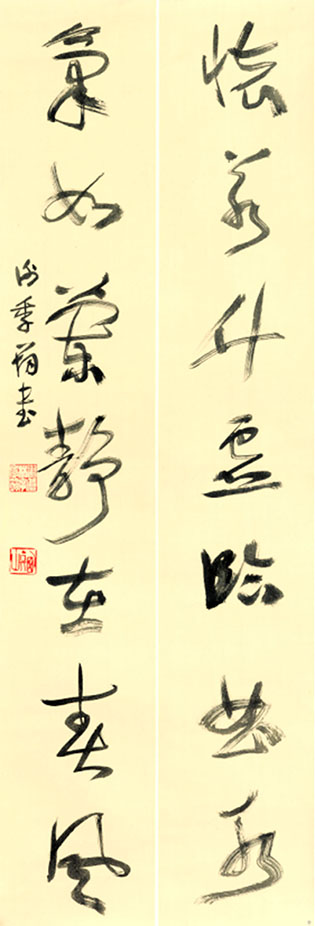 懷若竹虛臨曲水
氣如蘭靜在春風
謝季筠書